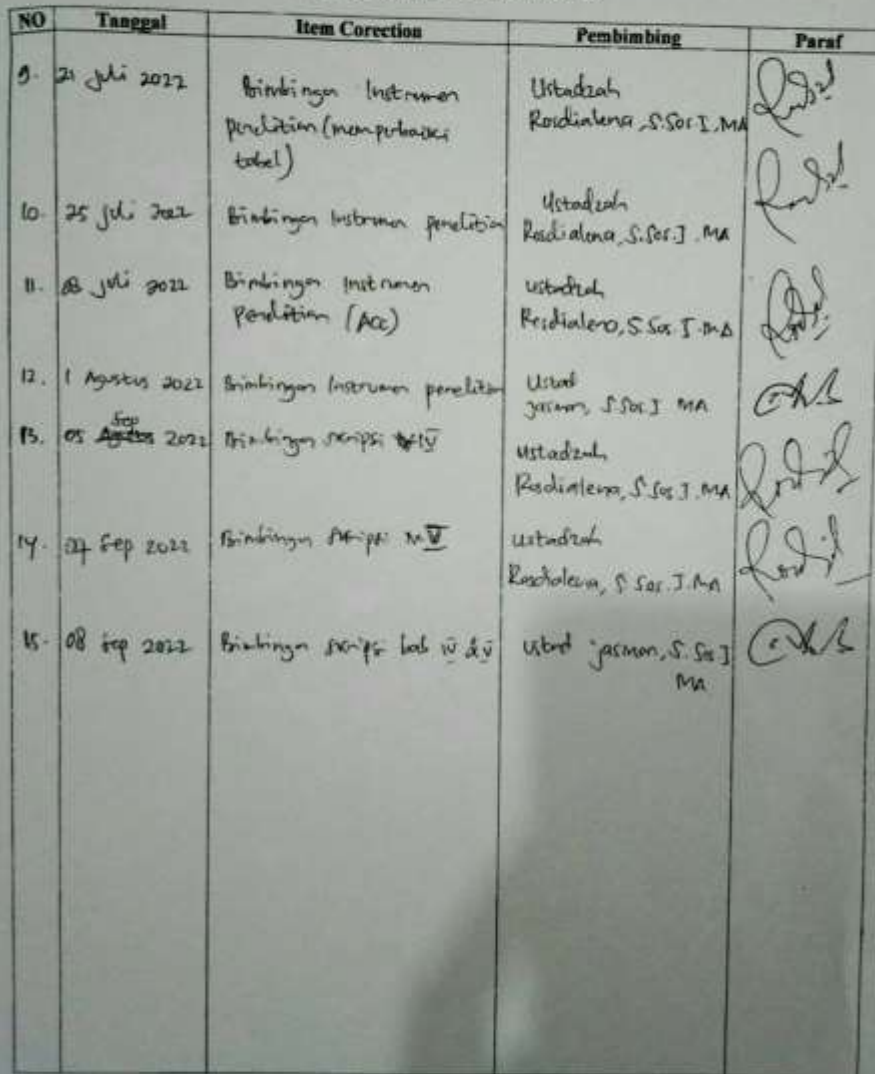 NO Tanggal Item Corection Pembimbing Paraf
9. 21 juli 2022 Bimbingan Instrumen Ustadzah
penelitian (memperbaiki Rosdialena, S.Sos.I, MA
tabel)
10. 25 juli 2022 Bimbingan Instrumen penelitian Ustadzah
Rosdialena, S.Sos.I. MA
11. 28 juli 2022 Bimbingan Instrumen ustadzah
Penelitian (Acc) Rosdialena, S.Sos.I. MA
12. 1 Agustus 2022 Bimbingan Instrumen penelitian Ustad
jasmon, S.Sos.I MA
Sep
13. 05 Agustus 2022 Bimbingan skripsi IV ustadzah
Rosdialena, S.Sos.I. MA
14. 07 Sep 2022 Bimbingan skripsi V ustadzah
Rosdialena, S.Sos.I.MA
15. 08 sep 2022 Bimbingan skripsi bab iv & v ustad jasmon, S.Sos I
MA